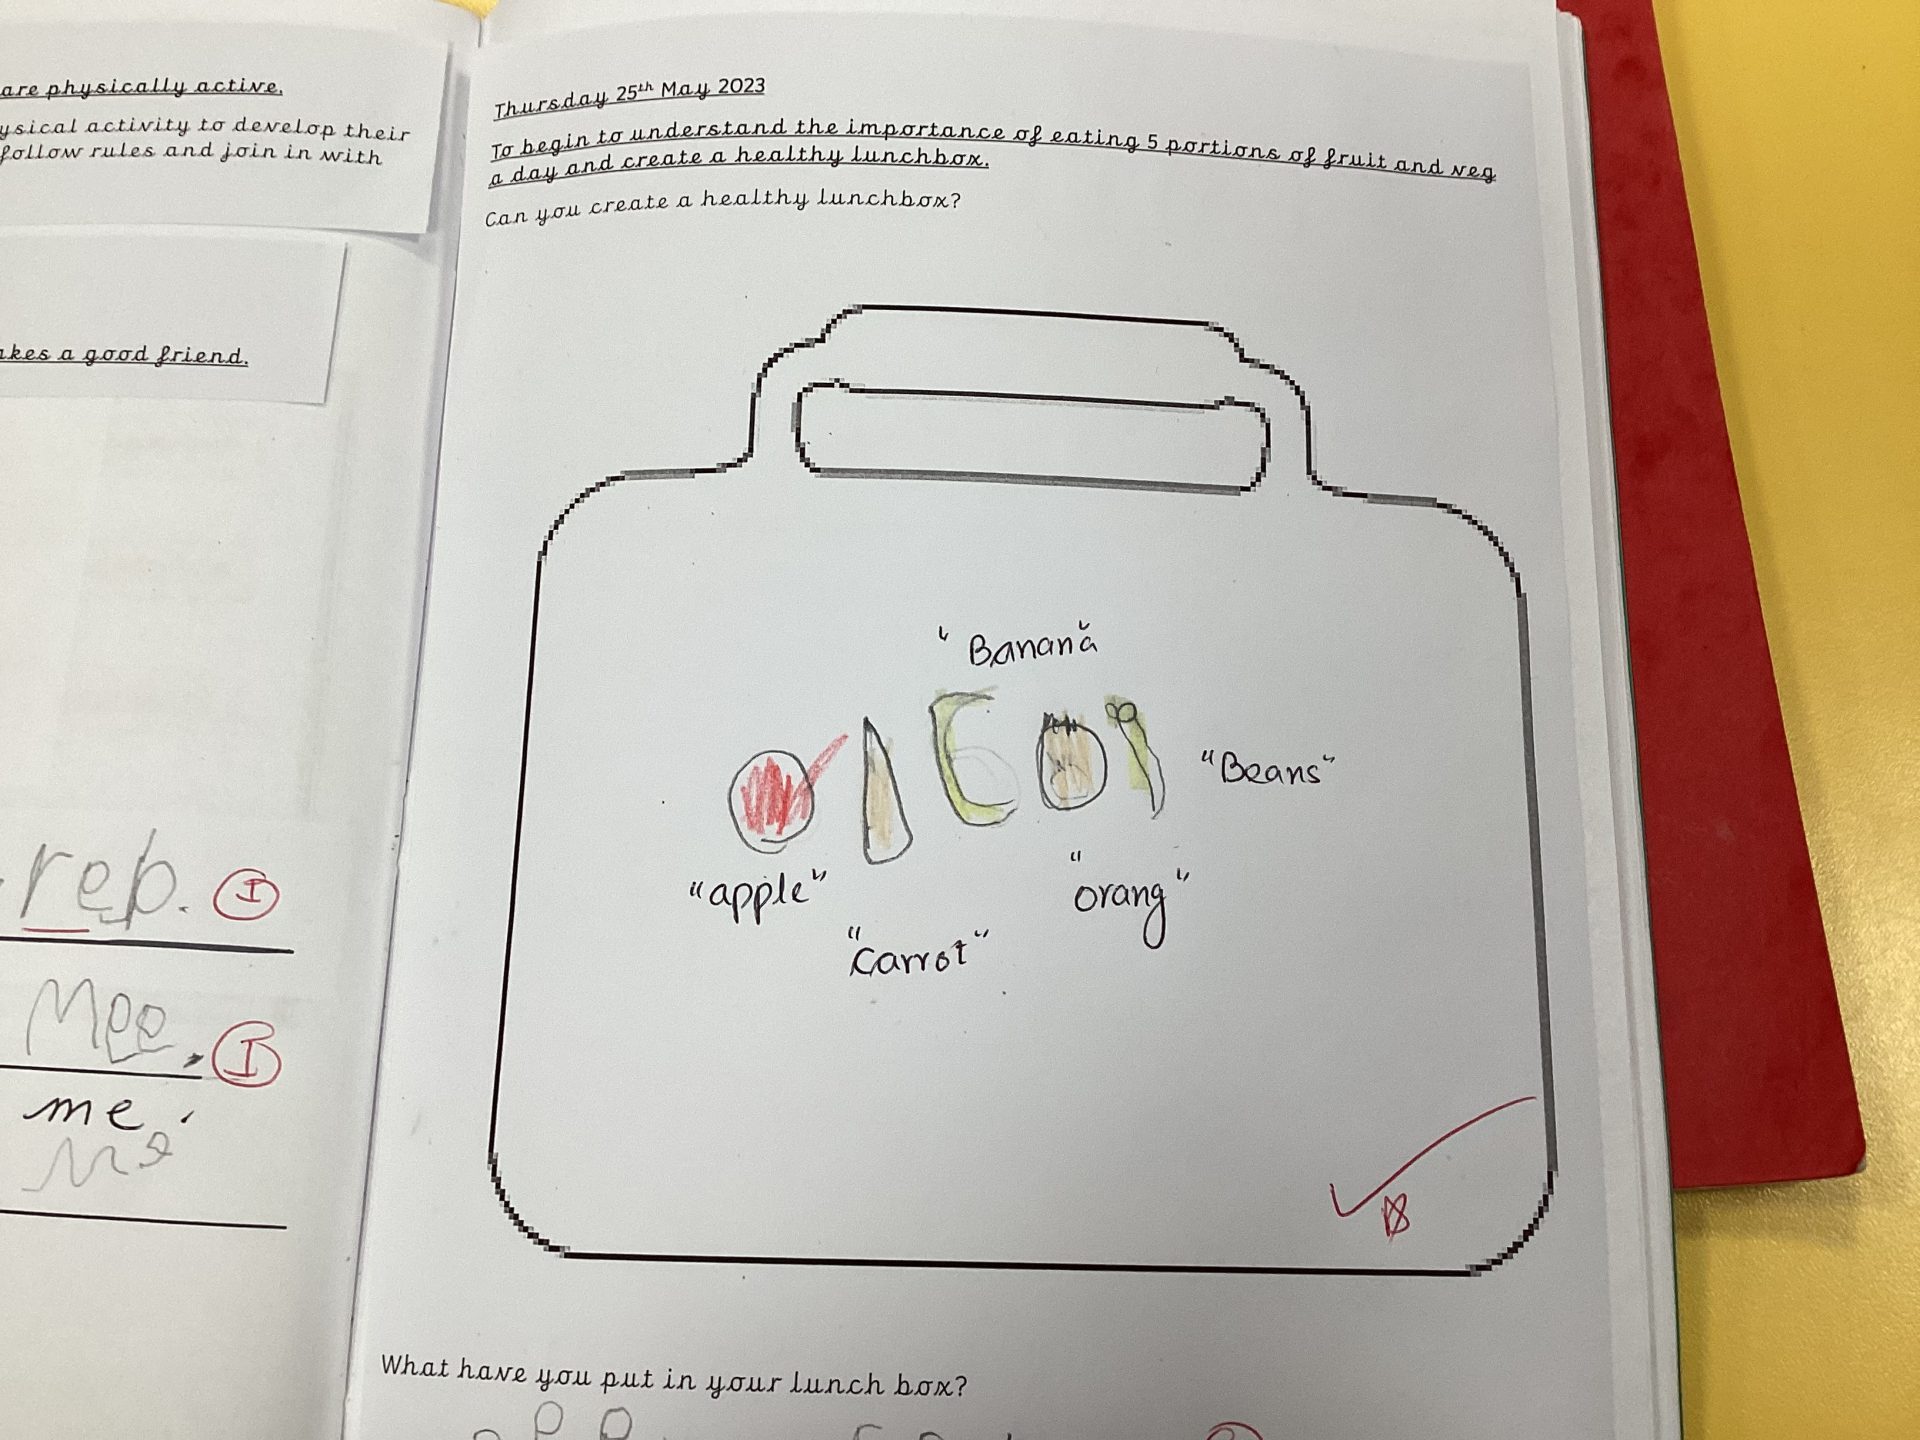 are physically active.
ysical activity to develop their
follow rules and join in with
akes a good friend.
reb. I
Mee. I
me.
Me
Thursday 25th May 2023
To begin to understand the importance of eating 5 portions of fruit and veg
a day and create a healthy lunchbox.
Can you create a healthy lunchbox?
"Banana"
"Beans"
"apple"
"orang"
"Carrot"
What have you put in your lunch box?